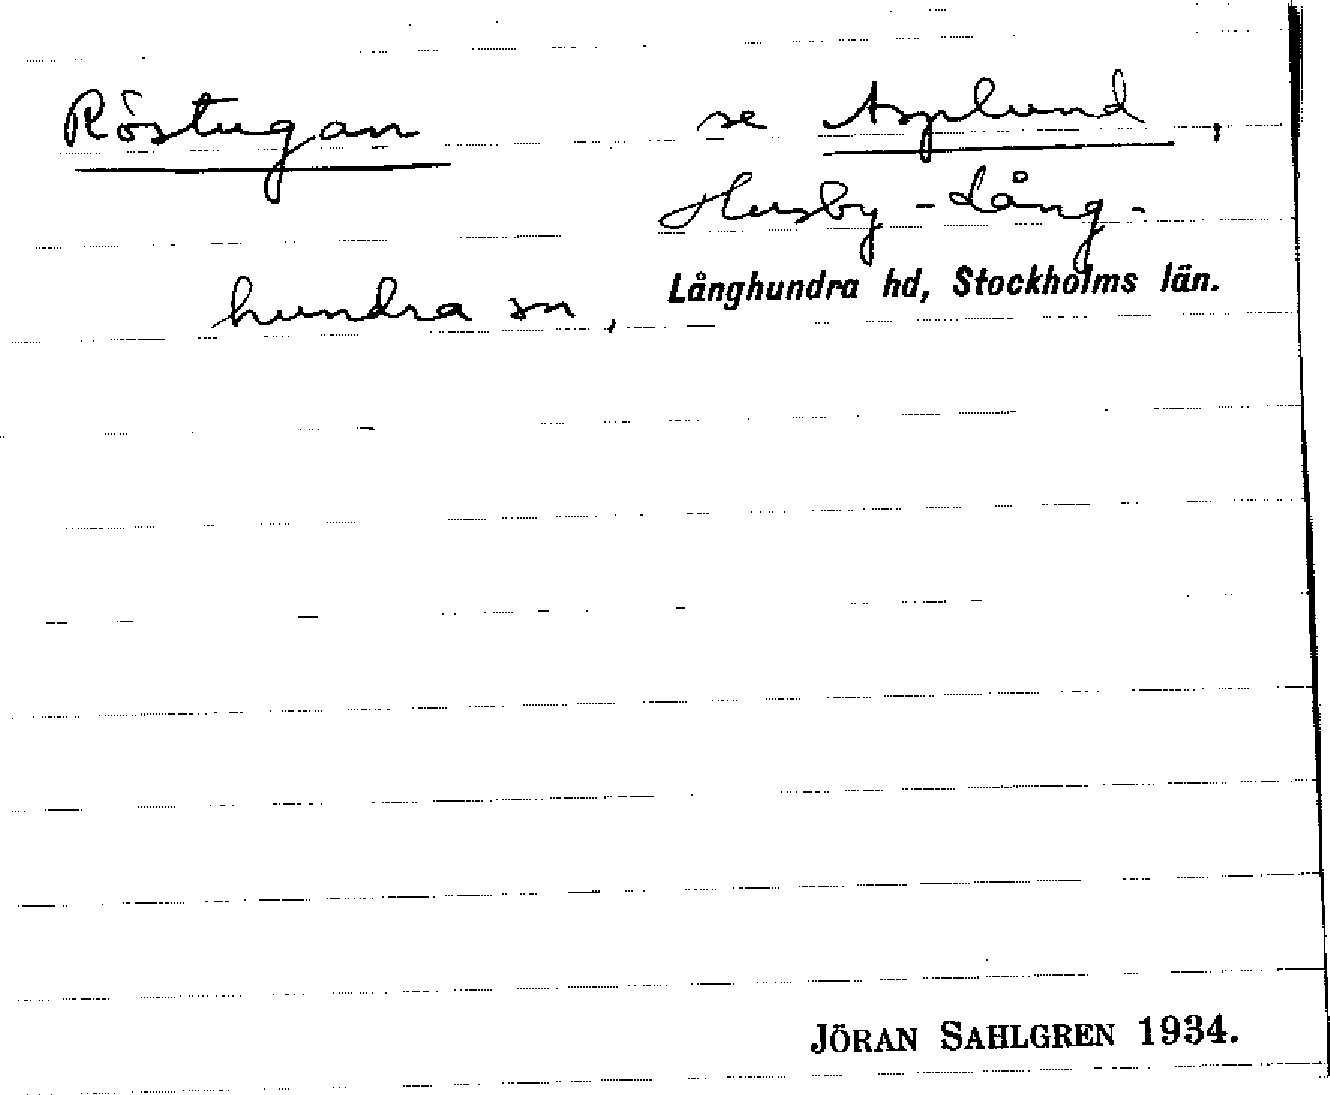 Röstugan se Asplund,
Husby-Lång-
hundra sn, Långhundra hd, Stockholms län.
JÖRAN SAHLGREN 1934.